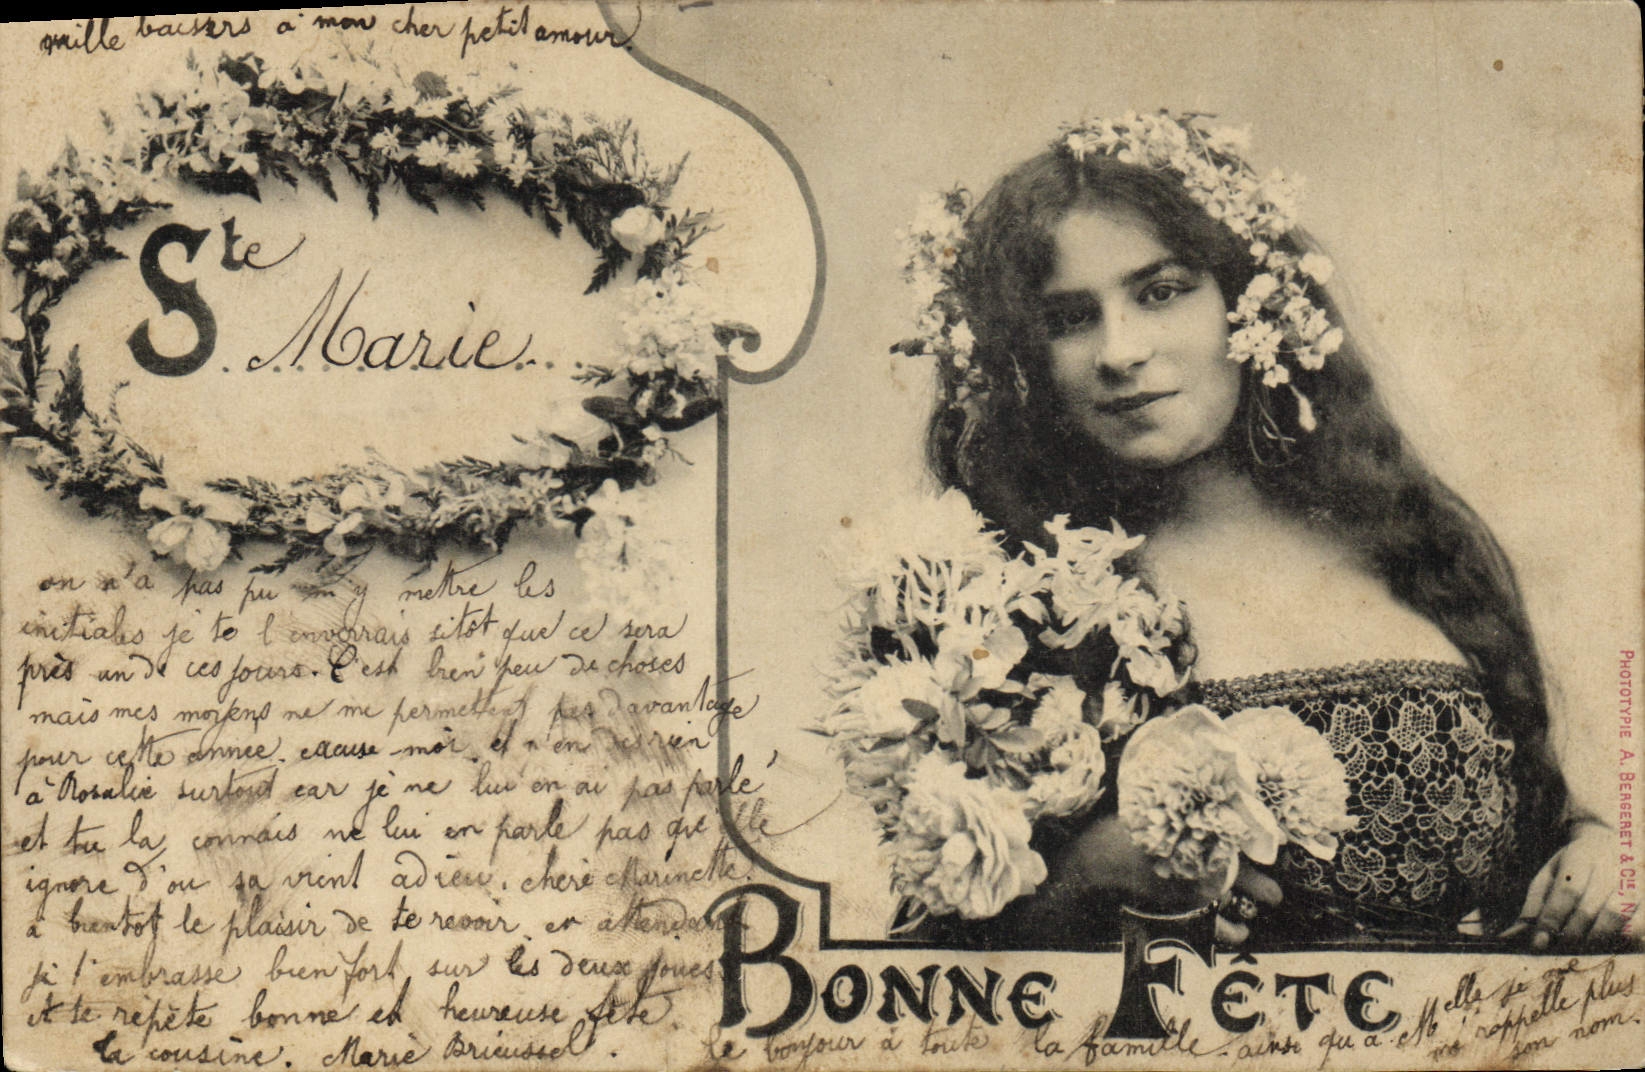 mille baisers à mon cher petit amour.
Ste
Marie...
on n'a pas pu m'y mettre les
initiales je te l'enverrais sitôt que ce sera
près un de ces jours. C'est bien peu de choses
mais mes moyens ne me permettent pas davantage
pour cette année. excuse-moi et n'en dis rien
à Rosalie surtout car je ne lui en ai pas parlé
et tu la connais ne lui en parle pas qu'elle
ignore d'ou sa vient adieu. chère Marinette.
a bientot le plaisir de te revoir en attendant
je t'embrasse bien fort sur les deux joues
et te répète bonne et heureuse fête.
la cousine. Marie Brieussel.
BONNE FÊTE
le bonjour à toute la famille. ainsi qu'a Melle je ne
m'rappelle plus
son nom.
PHOTOTYPIE A. BERGERET & Cie, NAN